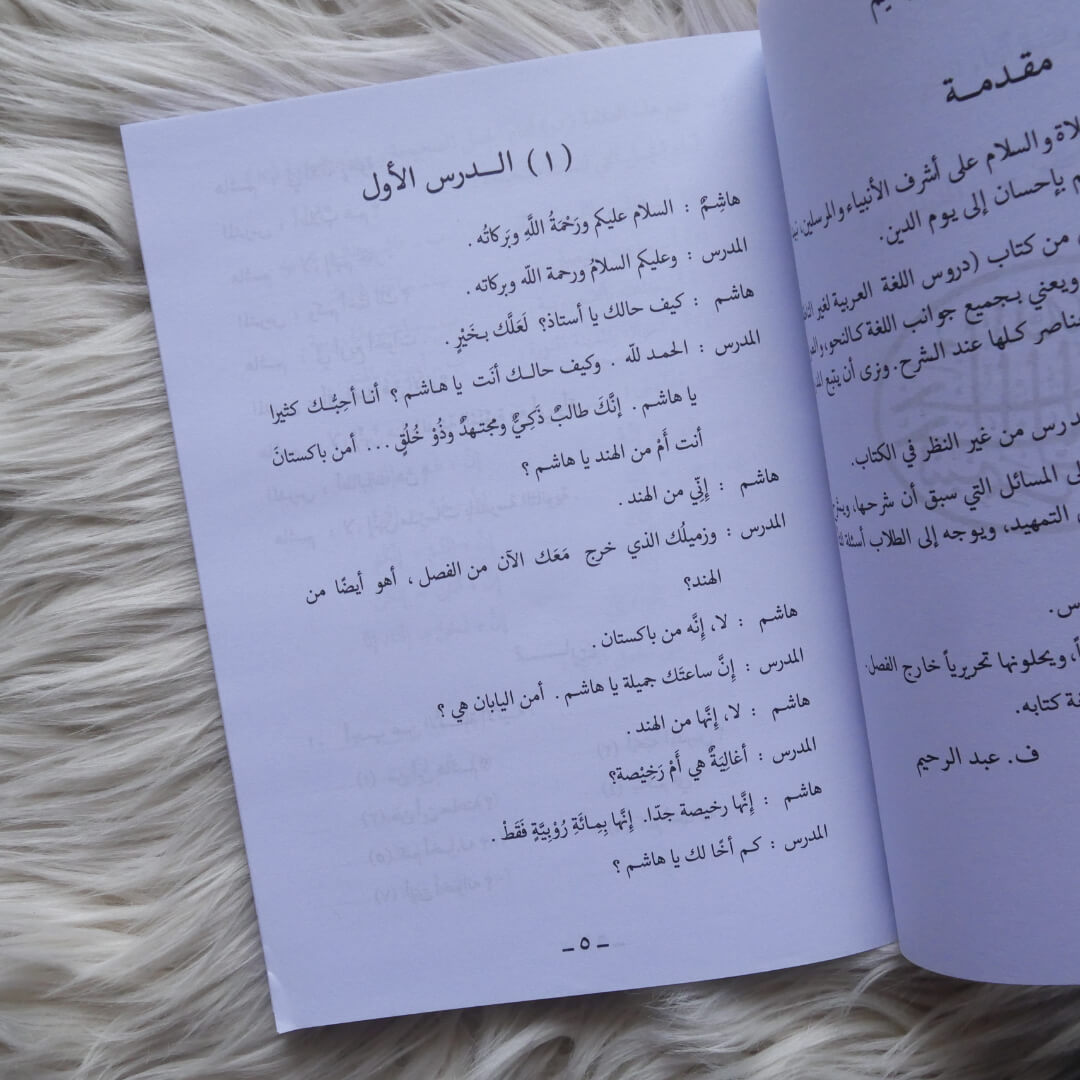 مقدمة
والسلام على أشرف الأنبياء والمرسلين،
بإحسان إلى يوم الدين.
من كتاب (دروس اللغة العربية لغير
ويعني بجميع جوانب اللغة كالنحو،
كلها عند الشرح. ونرى أن يتبع
من غير النظر في الكتاب.
المسائل التي سبق أن شرحها،
التمهيد، ويوجه إلى الطلاب أسئلة
ويحلونها تحريرياً خارج الفصل.
كتابه.
ف. عبد الرحيم
(١) الـدرس الأول
هاشِمٌ : السلام عليكم ورَحْمَةُ اللَّهِ وبَركاتُه .
المدرس : وعليكم السلامُ ورحمة الله وبركاته .
هاشم : كيف حالك يا أستاذ؟ لَعَلَّك بـخَيْرٍ .
المدرس : الحمد لله . وكيف حالـك أنَت يا هاشم ؟ أنـا أحِبُّـك كثيرا
يا هاشم . إنَّكَ طالبٌ ذَكيٌّ ومجتهدٌ وذُوْ خُلُقٍ ... أمن باكستانَ
أنت أَمْ من الهند يا هاشم ؟
هاشم : إنِّي من الهند .
المدرس : وزميلُك الذي خرج مَعَك الآن من الفصل ، أهو أيضًا من
الهند؟
هاشم : لا، إنَّه من باكستان .
المدرس : إنَّ ساعتَك جميلة يا هاشم . أمن اليابان هي ؟
هاشم : لا، إنَّها من الهند .
المدرس : أغالِيَةٌ هي أَمْ رَخِيْصة؟
هاشم : إنَّها رخيصة جدّا. إنَّها بِمِائَةِ رُوْبِيَّةٍ فَقَطْ .
المدرس : كم أخًا لك يا هاشم ؟
ـ ٥ ـ